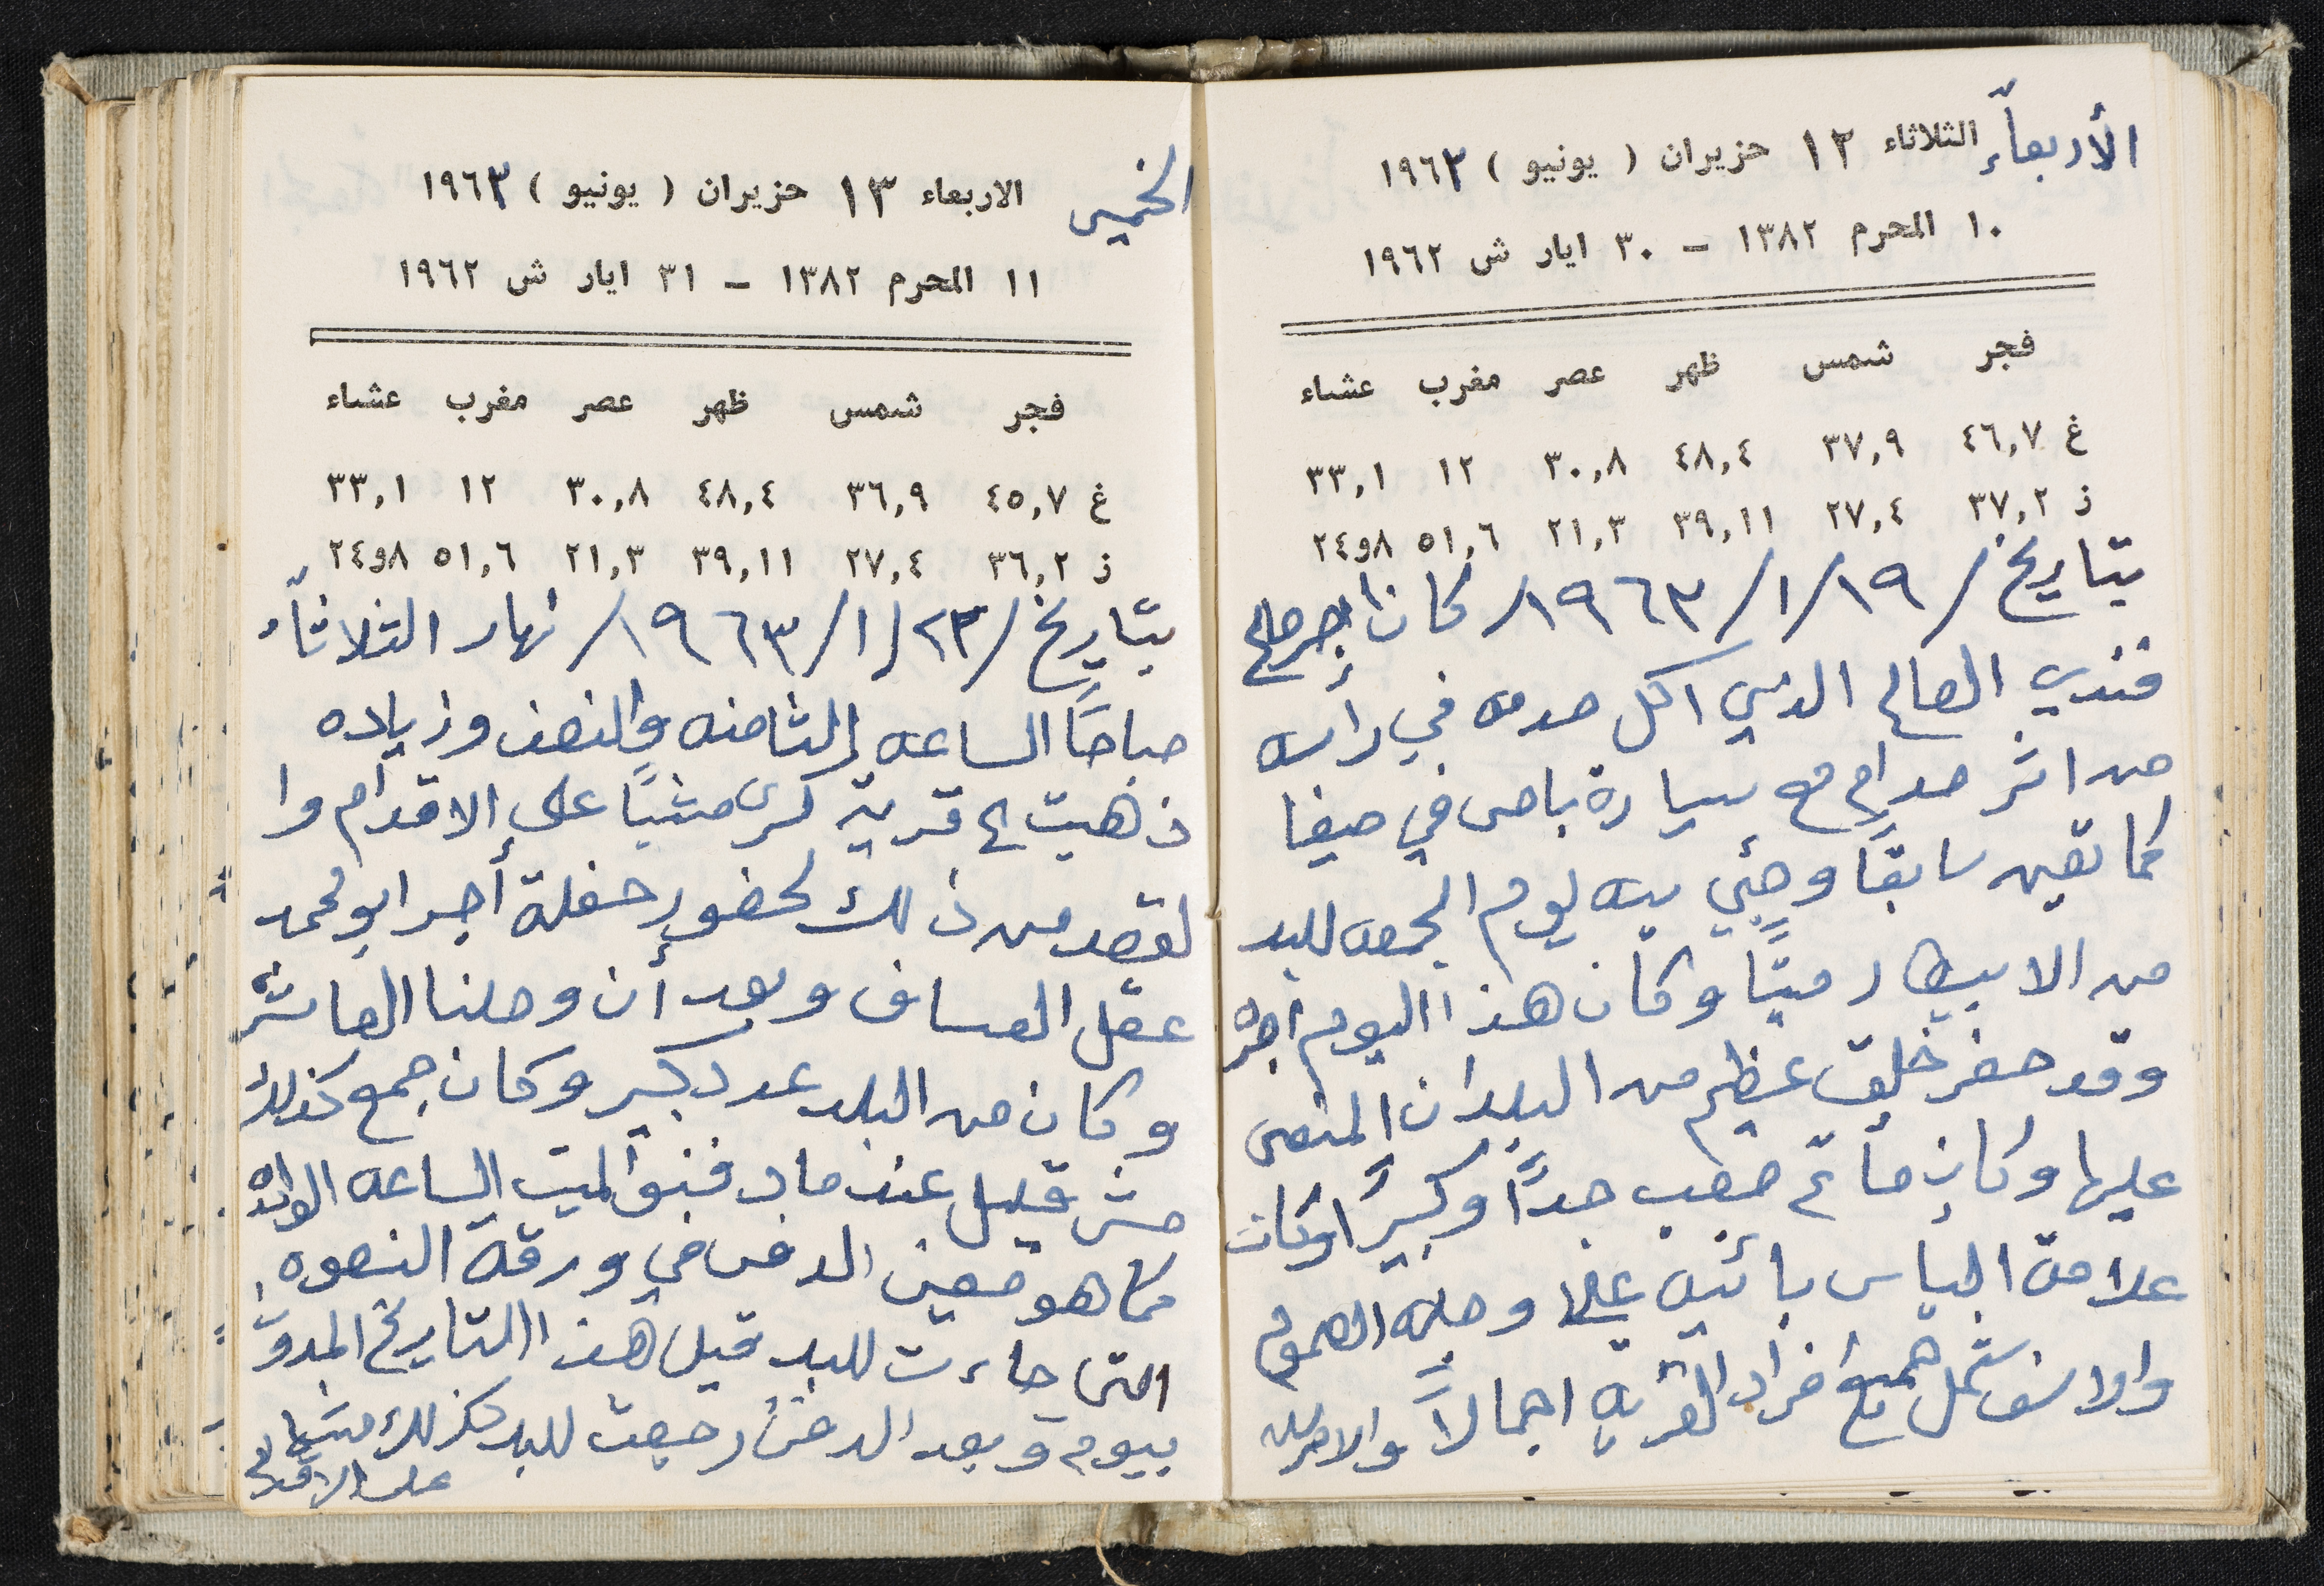 الأربعاء الثلاثاء ١٢ حزيران ( يونيو ) ١٩٦٣
١٠ المحرم ١٣٨٢ - ٣٠ ايار ش ١٩٦٢
فجر شمس ظهر عصر مغرب عشاء
غ ٤٦,٧ ٣٧,٩ ٤٨,٤ ٣٠,٨ ١٢ ٣٣,١
ز ٣٧,٢ ٢٧,٤ ٣٩,١١ ٢١,٣ ٥١,٦ ٨و٢٤
بتاريخ /١٩/١/١٩٦٣/ كان اجر صالح
فندي الصالح الذي اكل صدمه في راسه
من اثر صدام مع سيارة باص في حيفا
كما تعين سابقاً وجئي بيه يوم الجمعه للبلد
من الابيطار ميتاً وكان هذا اليوم اجره
وقد حضر خلق عظيم من البلدان
عليها وكان مأتم صعب جداً وكبيراً وكانت
علامة اليأس بائنيه علا وجله العموم
والاسف شمل جميع افراد القريه اجمالاً والامر لله
الخميس الاربعاء ١٣ حزيران ( يونيو ) ١٩٦٣
١١ المحرم ١٣٨٢ - ٣١ ايار ش ١٩٦٢
فجر شمس ظهر عصر مغرب عشاء
غ ٤٥,٧ ٣٦,٩ ٤٨,٤ ٣٠,٨ ١٢ ٣٣,١
ز ٣٦,٢ ٢٧,٤ ٣٩,١١ ٢١,٣ ٥١,٦ ٨و٢٤
بتاريخ /٢٣/١/١٩٦٣/ نهار الثلاثاء
صباحاً الساعه الثامنه والنصف وزياده
ذهبت الى قرية كسرى مشياً على الاقدام وا
لقصد من ذلك لحضور حفلة أجر ابو محمد
عقل العساف وبعد أن وصلنا العاشره
وكان من البلد عدد كبير وكان جمع كذلك
مش قليل عندما دفنو الميت الساعه الواحده
كما هو معين الدفن في ورقة النعوه
التى جاءت للبلد قبل هذا التاريخ المدون
بيوم وبعد الدفن رجعت للبلد كذلك مشياً
على الاقدام